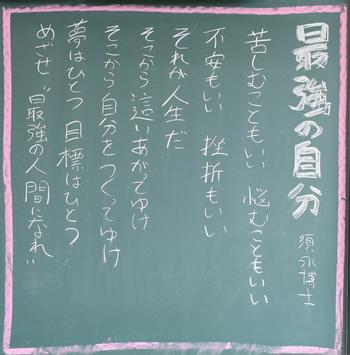 最強の自分
須永博士
苦しむこともいい 悩むこともいい
不安もいい 挫折もいい
それが人生だ
そこから這いあがってゆけ
そこから自分をつくってゆけ
夢はひとつ 目標はひとつ
めざせ“最強の人間になれ”